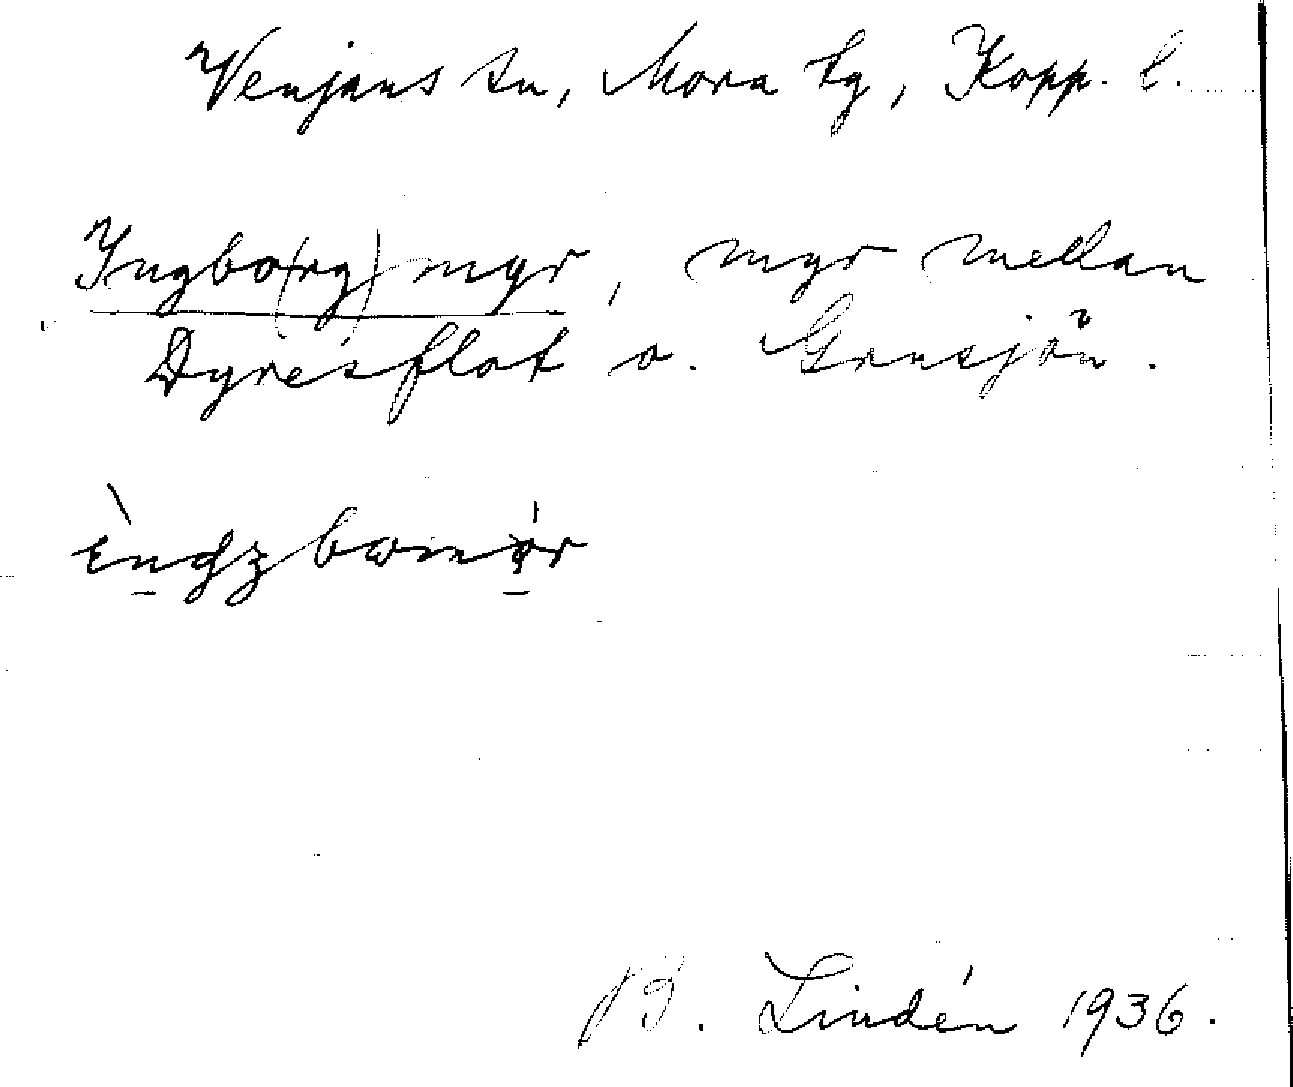 Venjans sn, Mora tg, Kopp. l.
Ingbo(rg)myr, myr mellan
Dyresflot o. Gensjön.
B. Lindén 1936.